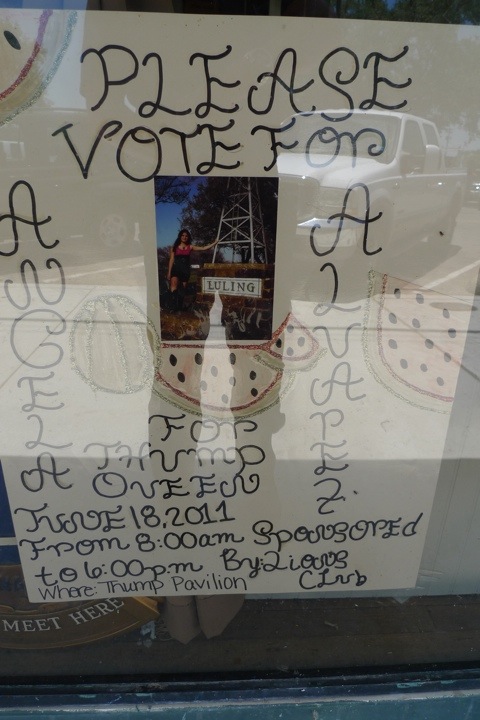 PLEASE
VOTE FOR
ALVAREZ
LULING
FOR
THUMP
QUEEN
JUNE 18, 2011
From 8:00am Sponsored
to 6:00p.m. By: Lions
Club
Where: Thump Pavilion
MEET HERE